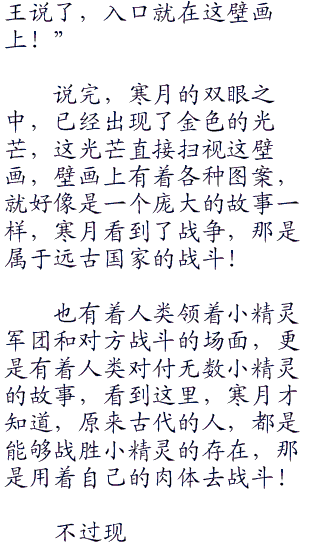 王说了，入口就在这壁画
上！”
说完，寒月的双眼之
中，已经出现了金色的光
芒，这光芒直接扫视这壁
画，壁画上有着各种图案，
就好像是一个庞大的故事一
样，寒月看到了战争，那是
属于远古国家的战斗！
也有着人类领着小精灵
军团和对方战斗的场面，更
是有着人类对付无数小精灵
的故事，看到这里，寒月才
知道，原来古代的人，都是
能够战胜小精灵的存在，那
是用着自己的肉体去战斗！
不过现